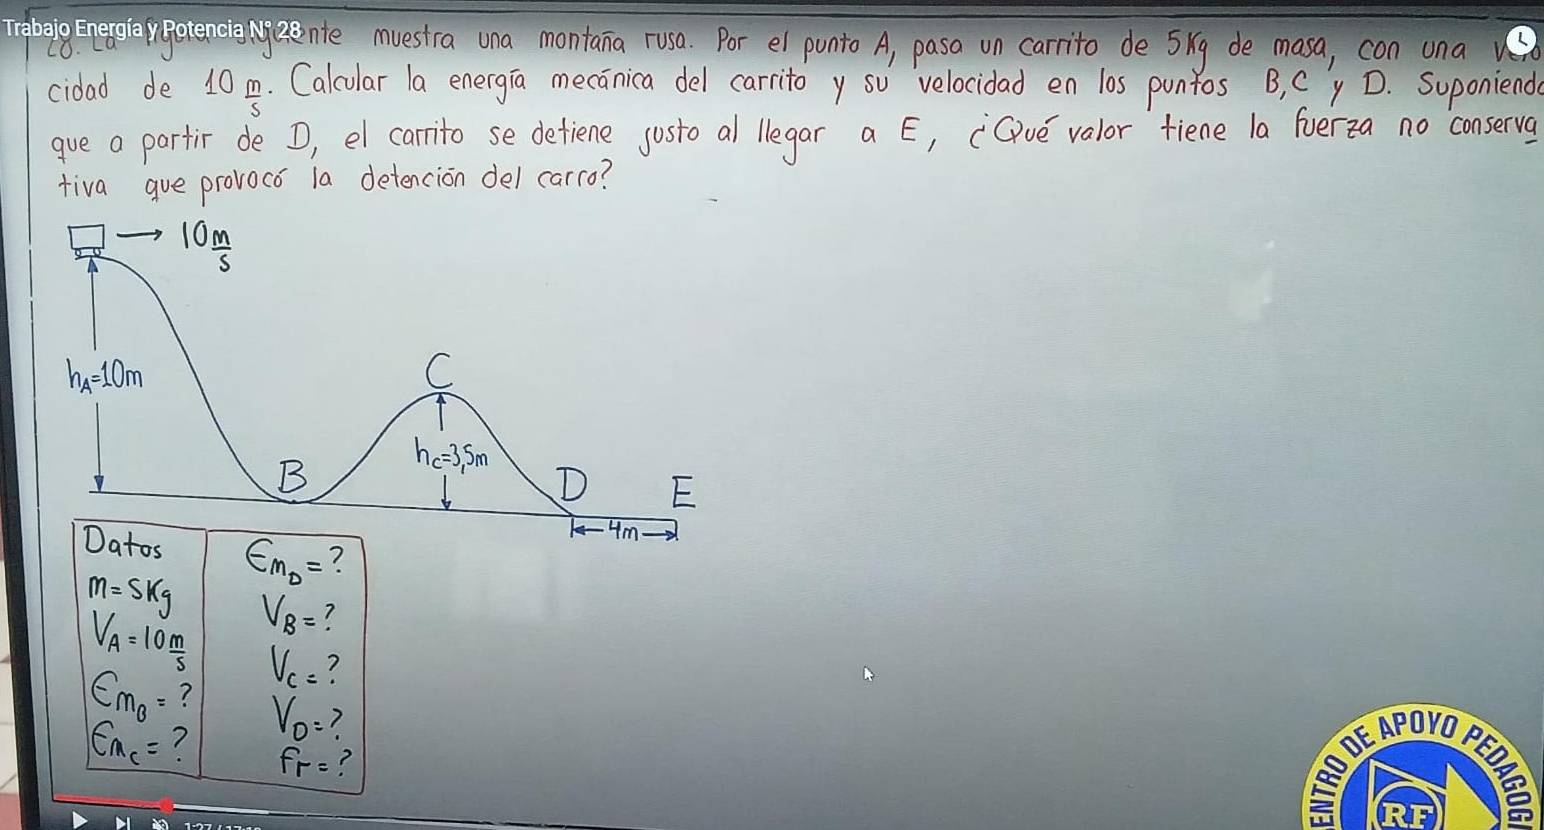 Trabajo Energía y Potencia N° 28
28. La figura siguiente muestra una montaña rusa. Por el punto A, pasa un carrito de 5Kg de masa, con una velo
cidad de 10 m/s. Calcular la energía mecánica del carrito y su velocidad en los puntos B, C y D. Suponiendo
que a partir de D, el carrito se detiene justo al llegar a E, ¿Qué valor tiene la fuerza no conserva
tiva que provocó la detención del carro?
10 m/s
hA=10m
C
hC=3,5m
B
D
E
4m
Datos
m=5Kg
VA=10 m/s
EmB=?
EmC=?
EmD=?
VB=?
VC=?
VD=?
Fr=?
CENTRO DE APOYO PEDAGOGI
RF
1:27